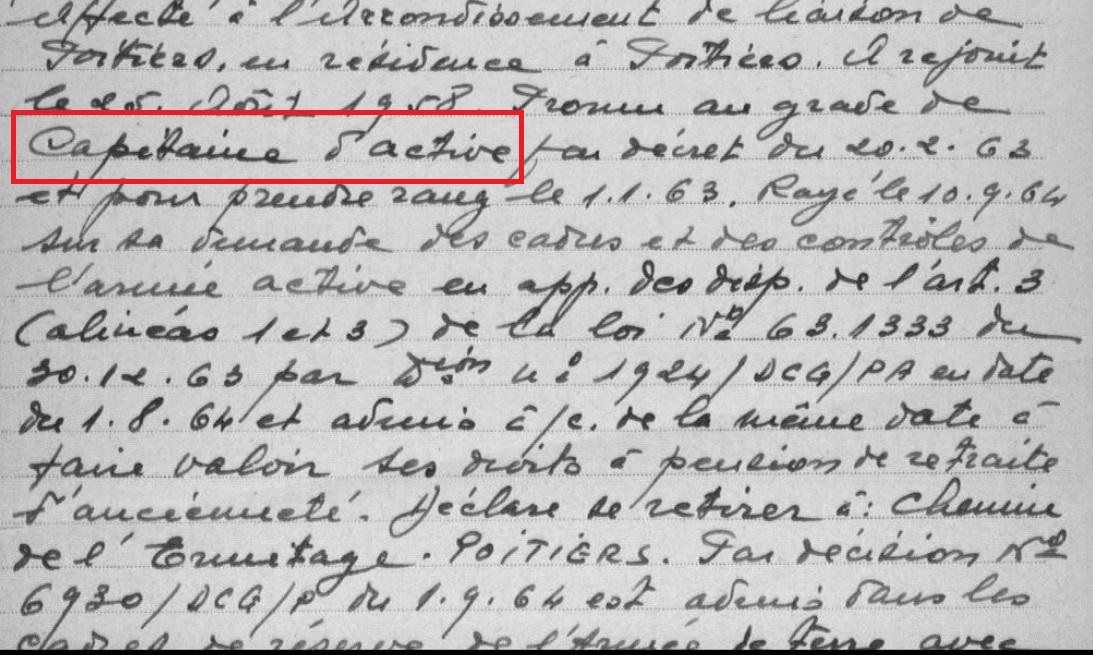 affecté à l'Arrondissement de liaison de
Poitiers, en résidence à Poitiers. Il rejoint
le 25. Août 1958. Promu au grade de
Capitaine d'active par décret du 20.2.63
et pour prendre rang le 1.1.63. Rayé le 10.9.64
sur sa demande des cadres et des contrôles de
l'armée active en app. des disp. de l'art. 3
(alinéas 1 et 3) de la loi Nº 63.1333 du
30.12.63 par Dion nº 1924/DCG/PA en date
du 1.8.64 et admis à /c. de la même date à
faire valoir ses droits à pension de retraite
d'ancienneté. Déclare se retirer à: Chemin
de l'Ermitage. POITIERS. Par décision Nº
6930/DCG/P du 1.9.64 est admis dans les
cadres de réserve de l'Armée de terre avec